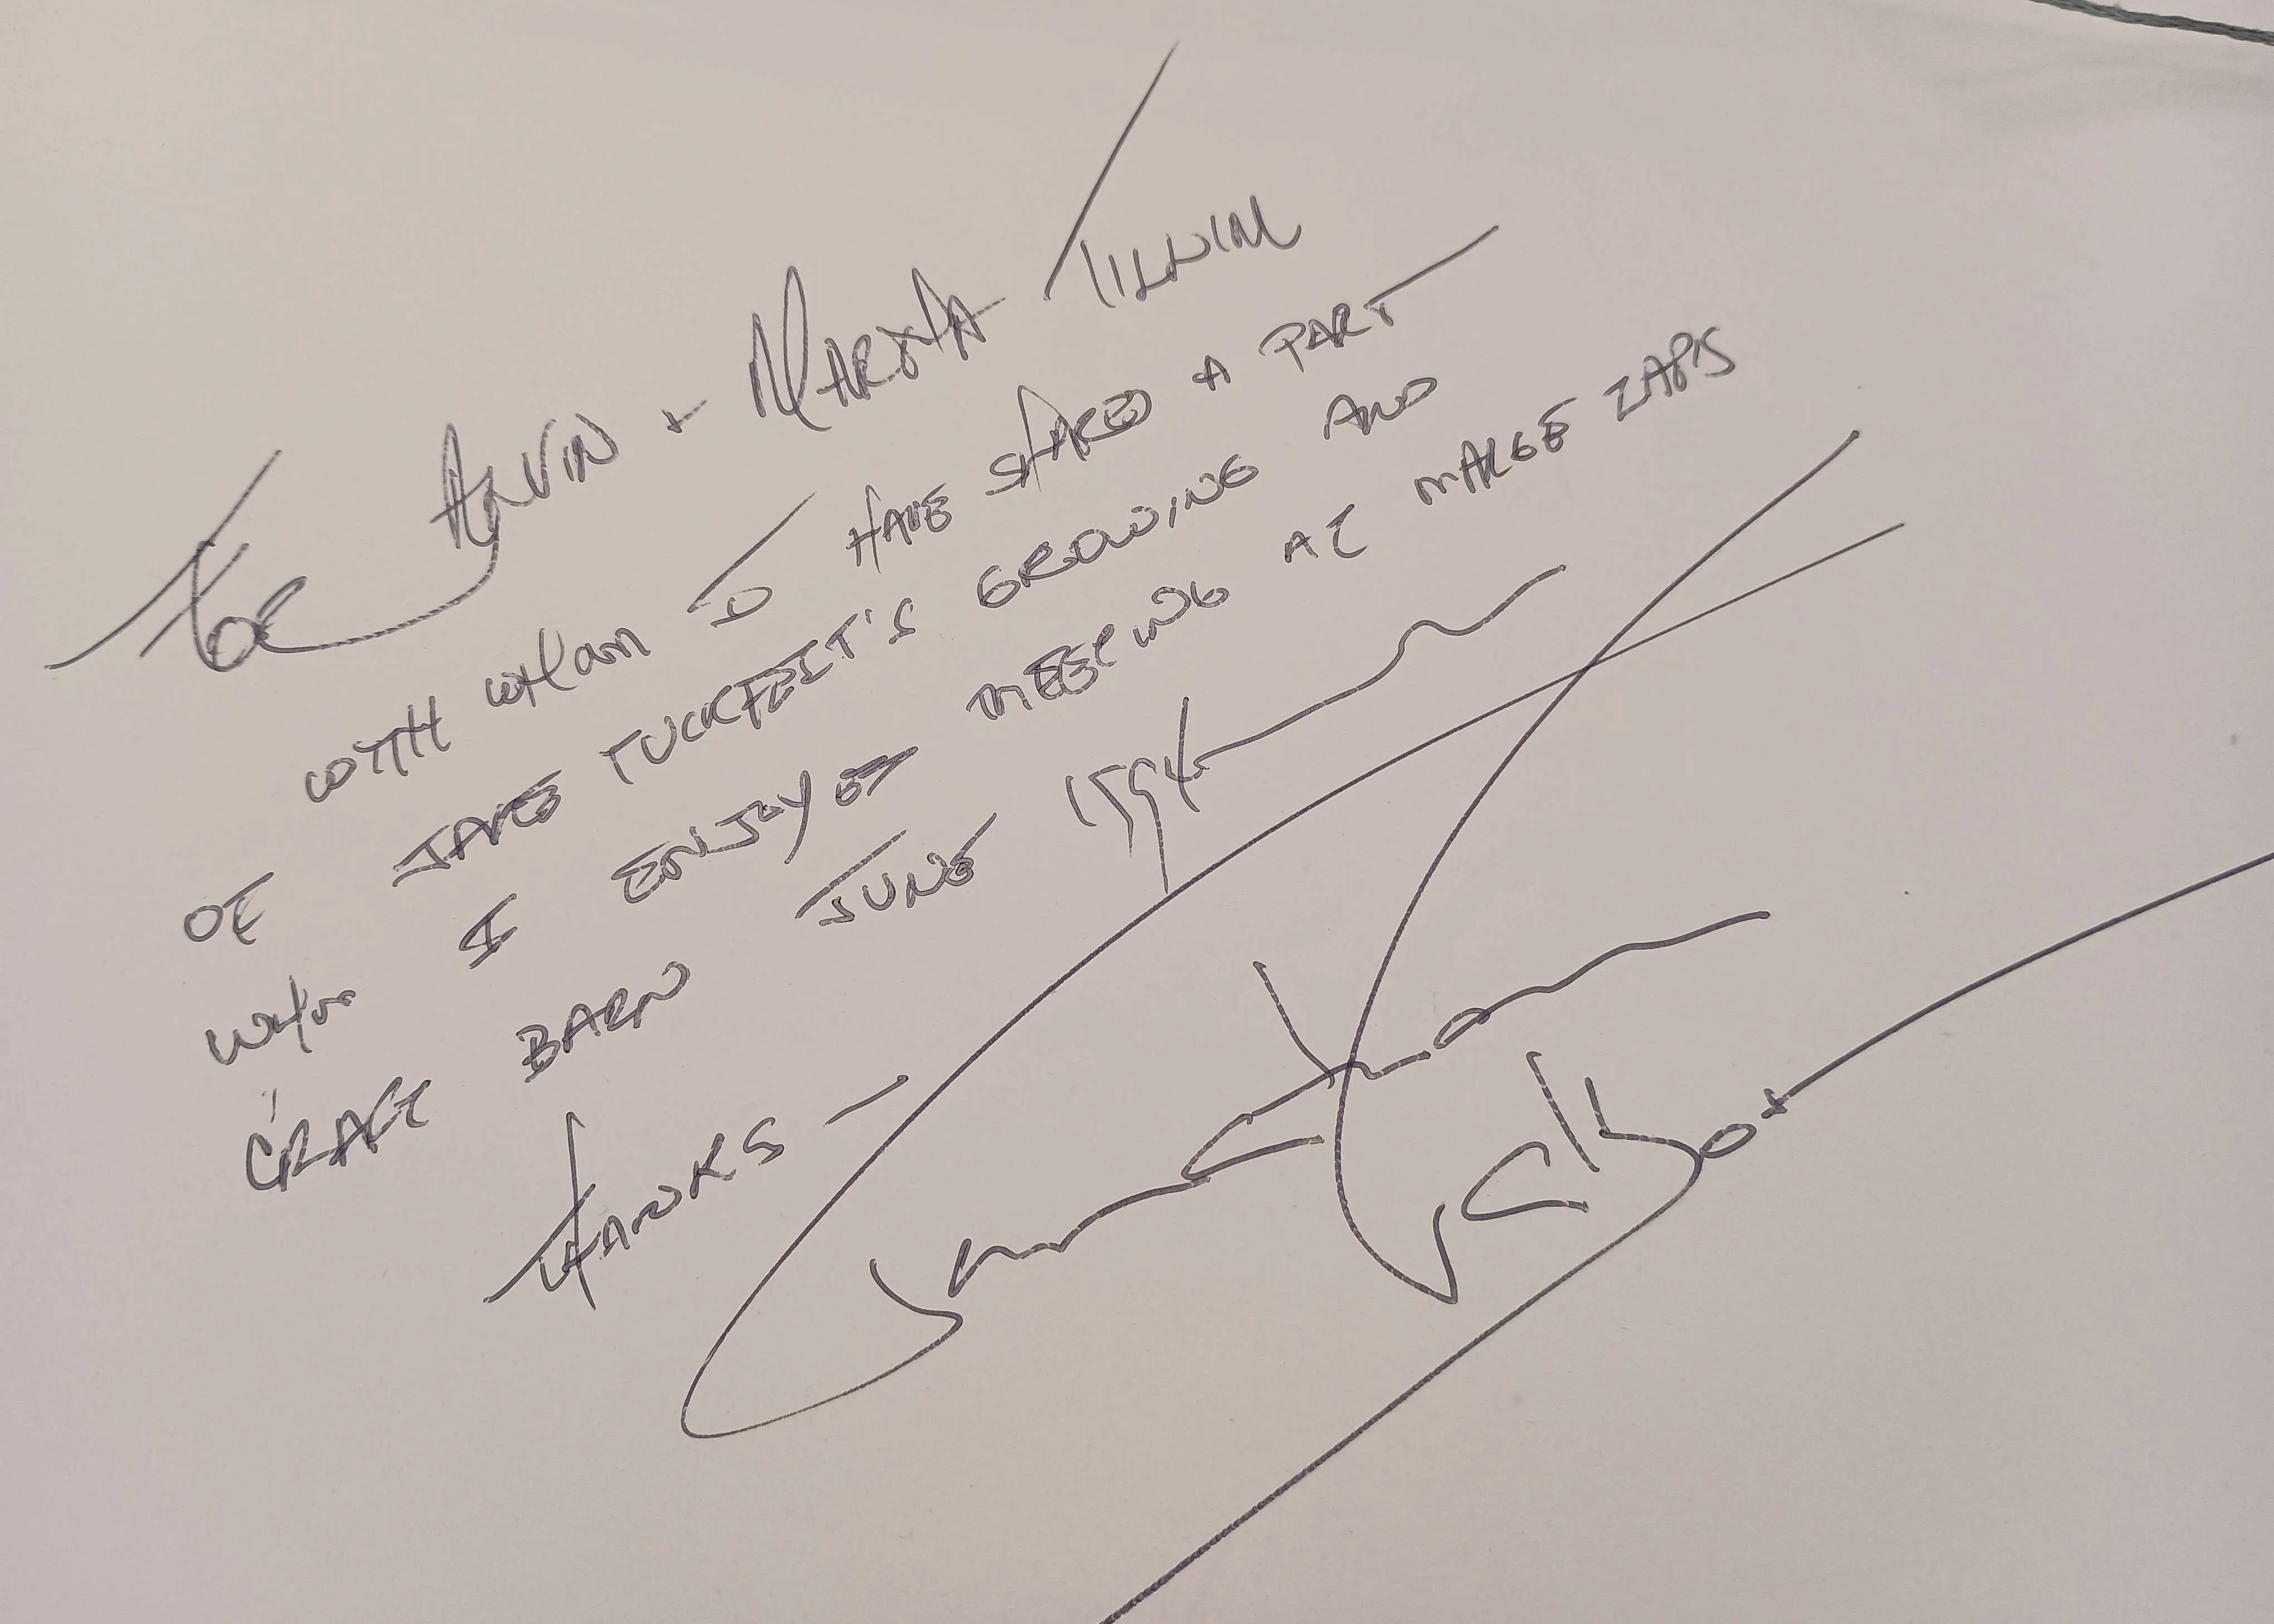 For ALVIN + MARTHA TILWIM
WITH WHOM I HAVE SHARED A PART
OF JAKE TUCKFEIT'S GROWING AND
WHOM I ENJOYED MEETING AT MARGE ZAPIS
CRAFT BARN JUNE 1994
THANKS —